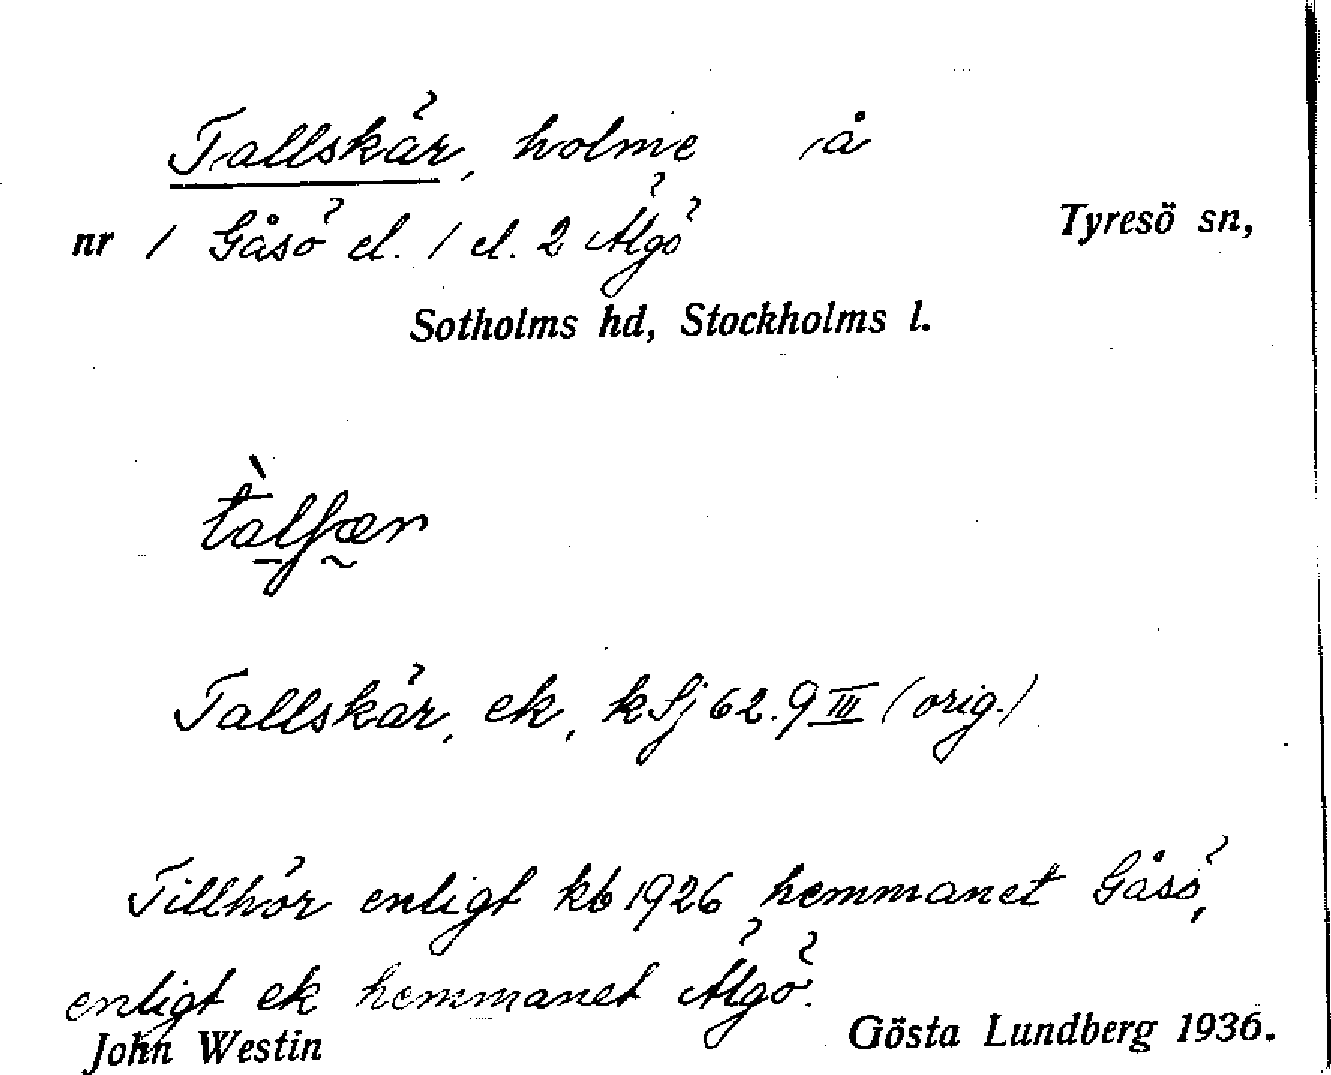 Tallskär, holme å
nr 1 Gåsö el. 1 el. 2 Älgö
Tyresö sn,
Sotholms hd, Stockholms l.
tàlʃær
Tallskär, ek, k Sj 62.9 III (orig.)
Tillhör enligt kb 1926 hemmanet Gåsö,
enligt ek hemmanet Älgö.
John Westin
Gösta Lundberg 1936.